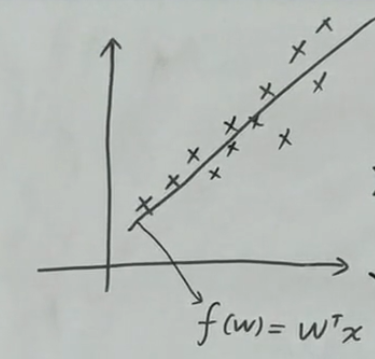 f(w) = wᵀx